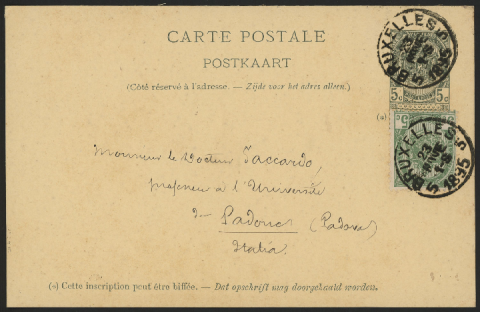 CARTE POSTALE
POSTKAART
(Côté réservé à l'adresse. — Zijde voor het adres alleen.)
5c 5c
(a)
BRUXELLES 5
1895
BRUXELLES 5
23
1895
Monsieur le Docteur Saccardo,
professeur à l'Université
de Padoue (Padova)
Italia.
(a) Cette inscription peut être biffée. — Dat opschrift mag doorgehaald worden.